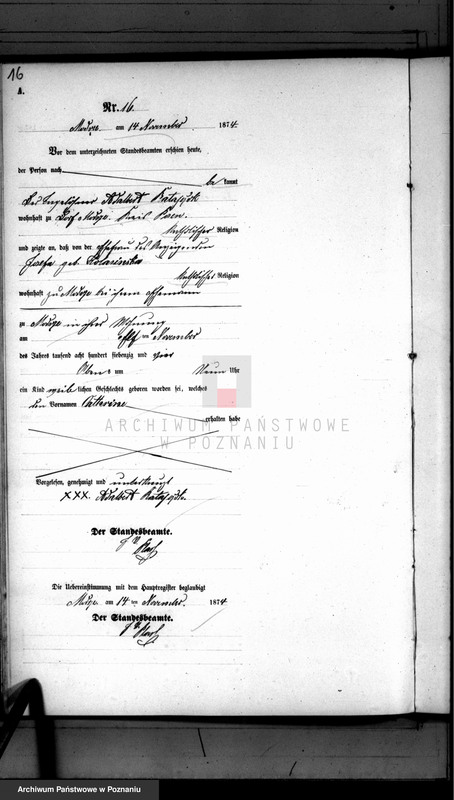 16
A.
Nr. 16.
am 14 November 1874.
Vor dem unterzeichneten Standesbeamten erschien heute,
der Person nach
be kannt
Adalbert
wohnhaft zu Dorf Kreis Posen.
katholischer Religion
und zeigte an, daß von der Ehefrau des Anzeigenden
geb.
katholischer Religion
wohnhaft zu bei ihrem Ehemann
zu in ihrer Wohnung
am elf ten November
des Jahres tausend acht hundert siebenzig und vier
Abends um Neun Uhr
ein Kind weib lichen Geschlechts geboren worden sei, welches
den Vornamen
erhalten habe
ARCHIWUM PAŃSTWOWE
W POZNANIU
Vorgelesen, genehmigt und unterkreuzt
XXX. Adalbert
Der Standesbeamte.
Die Uebereinstimmung mit dem Hauptregister beglaubigt
am 14 ten November 1874
Der Standesbeamte.
Archiwum Państwowe w Poznaniu